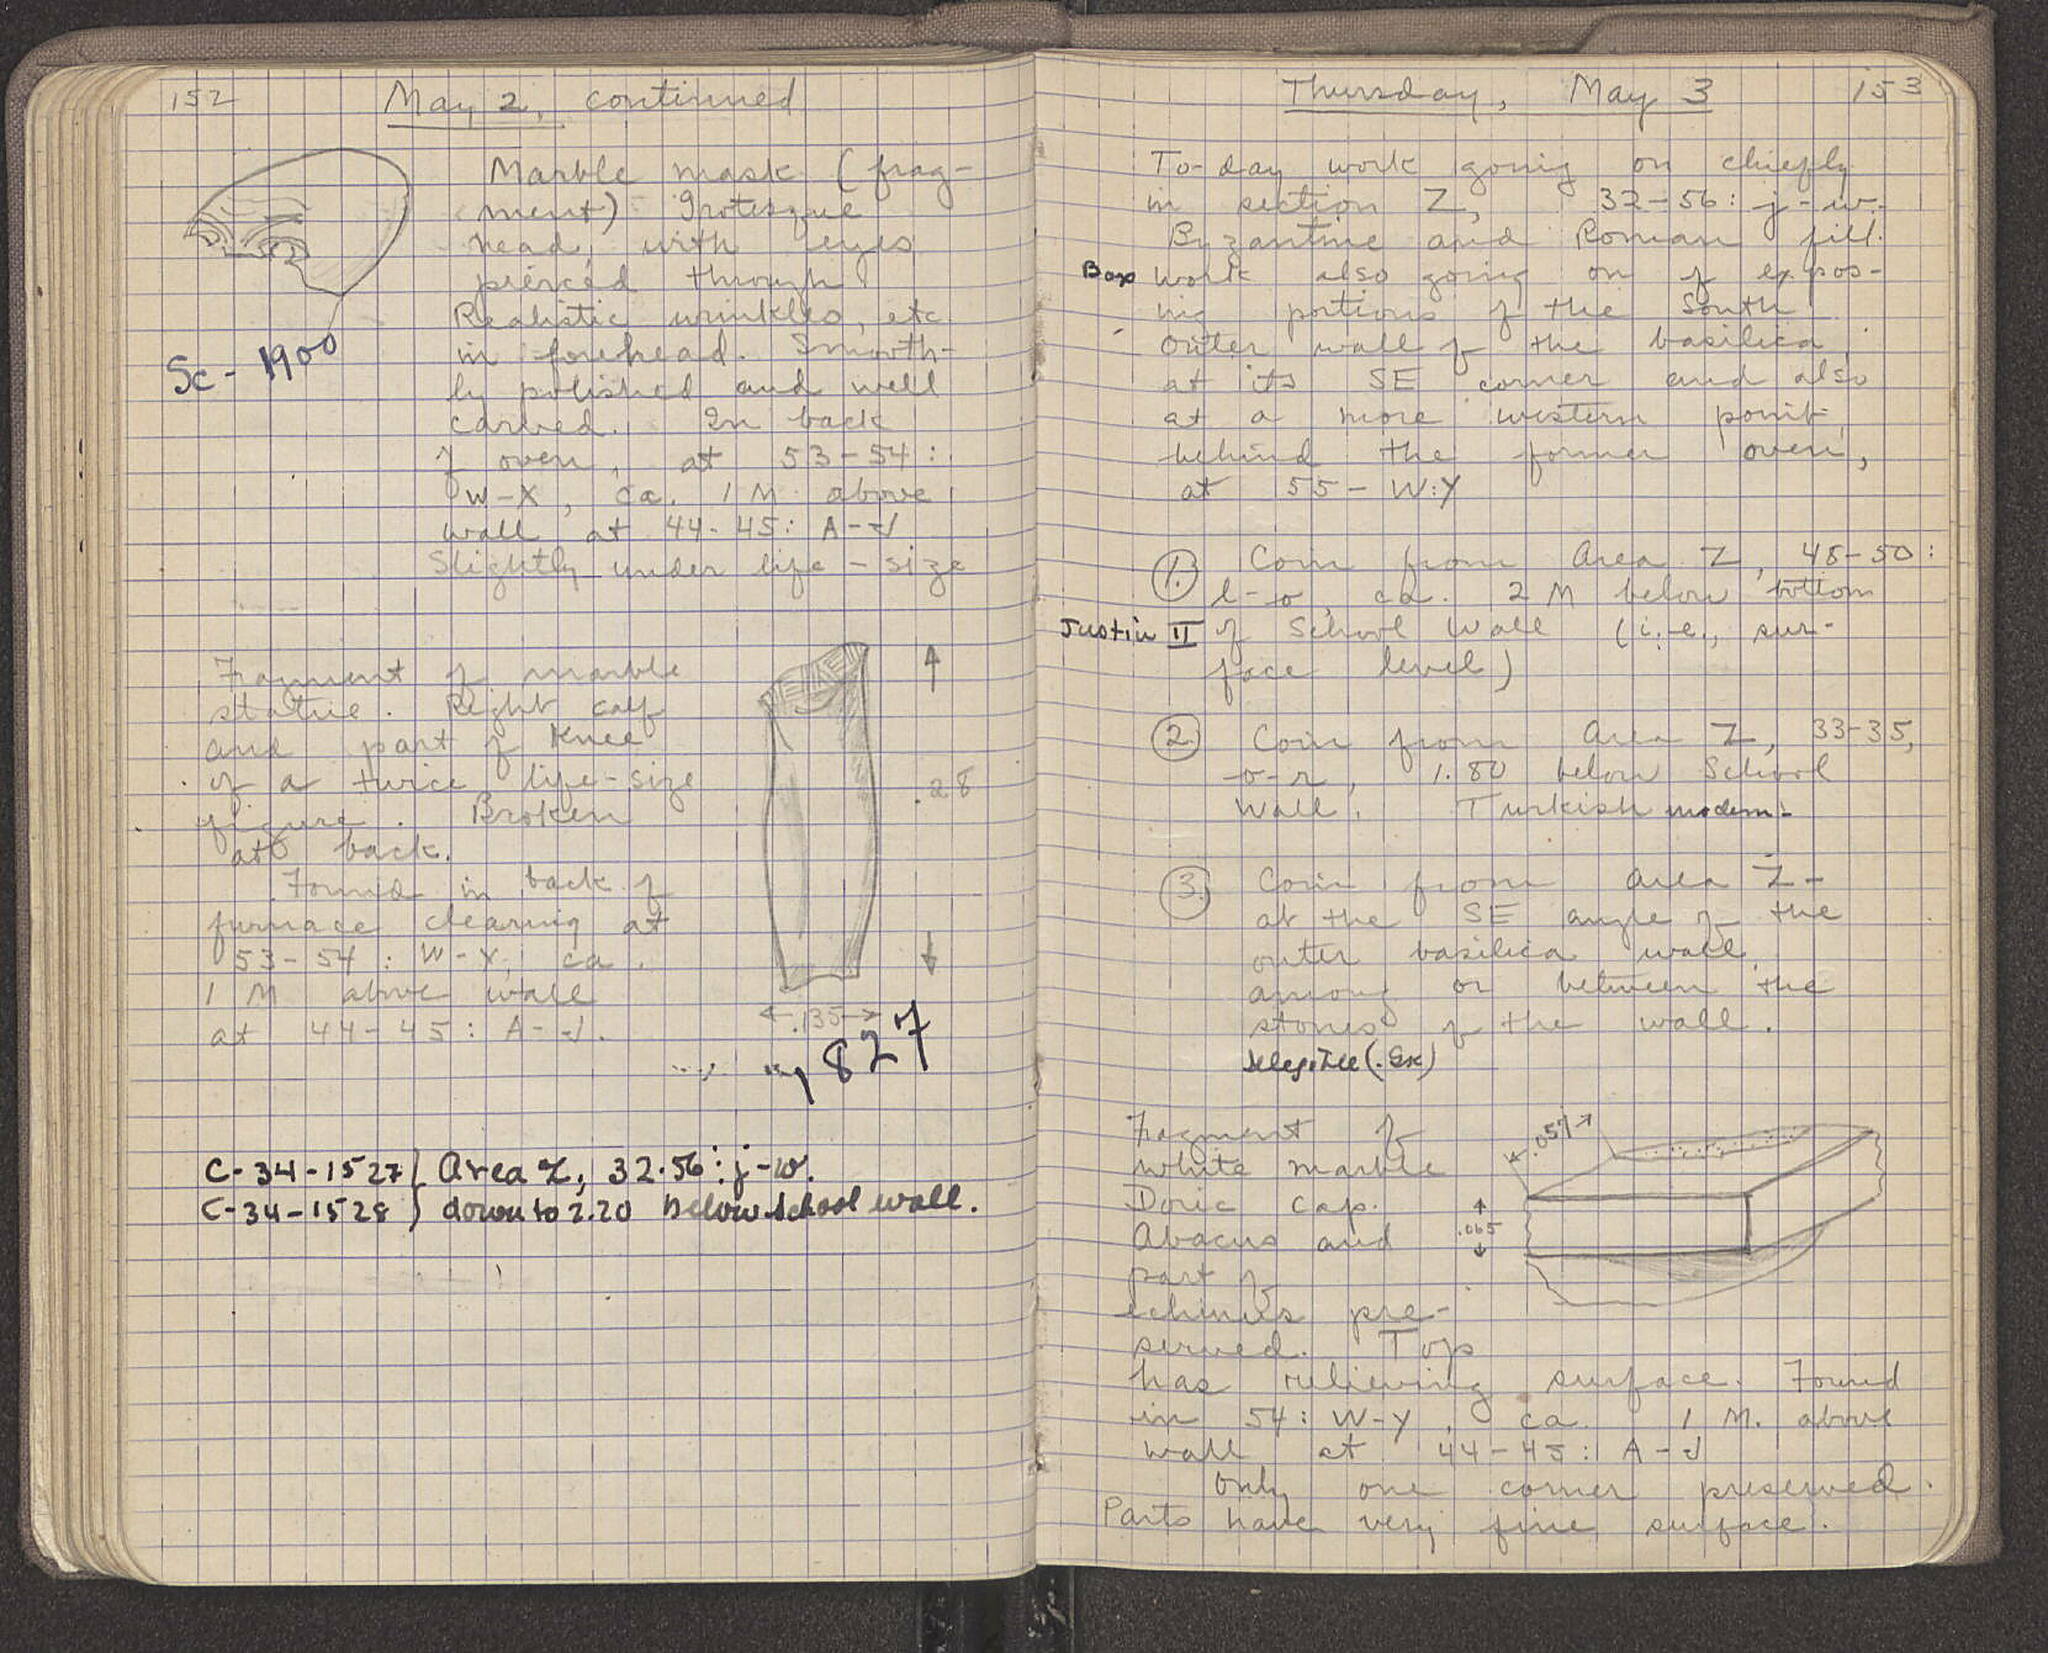 152
May 2, continued
Marble mask (frag-
ment) Grotesque
head, with eyes
pierced through.
Realistic wrinkles, etc
in forehead. Smooth-
ly polished and well
carved. In back
of oven, at 53-54:
W-X, ca. 1 M above
wall at 44-45: A-J
Slightly under life-size
Sc-1900
Fragment of marble
statue. Right calf
and part of knee
of a twice life-size
figure. Broken
at back.
Found in back of
furnace clearing at
53-54: W-X, ca.
1 M above wall
at 44-45: A-J.
.28
.135
1827
C-34-1527 } Area Z, 32-56: j-w.
C-34-1528 } down to 2.20 below school wall.
Thursday, May 3
153
To-day work going on chiefly
in section Z, 32-56: j-w.
Byzantine and Roman fill.
Box
Work also going on of expos-
ing portions of the South
outer wall of the basilica
at its SE corner and also
at a more western point
behind the former oven,
at 55-W:Y
1. Coin from Area Z, 48-50:
l-o, ca. 2 M below bottom
Justin II
of School Wall (i.e., sur-
face level)
2. Coin from Area Z, 33-35,
o-r, 1.80 below School
Wall. Turkish modern:
3. Coin from Area Z-
at the SE angle of the
outer basilica wall
among or between the
stones of the wall.
Fragment of
white marble
Doric cap.
Abacus and
part of
echinus pre-
served. Top
has relieving surface. Found
in 54: W-Y, ca. 1 M. above
wall at 44-45: A-J
Only one corner preserved.
Parts have very fine surface.
.057
.065